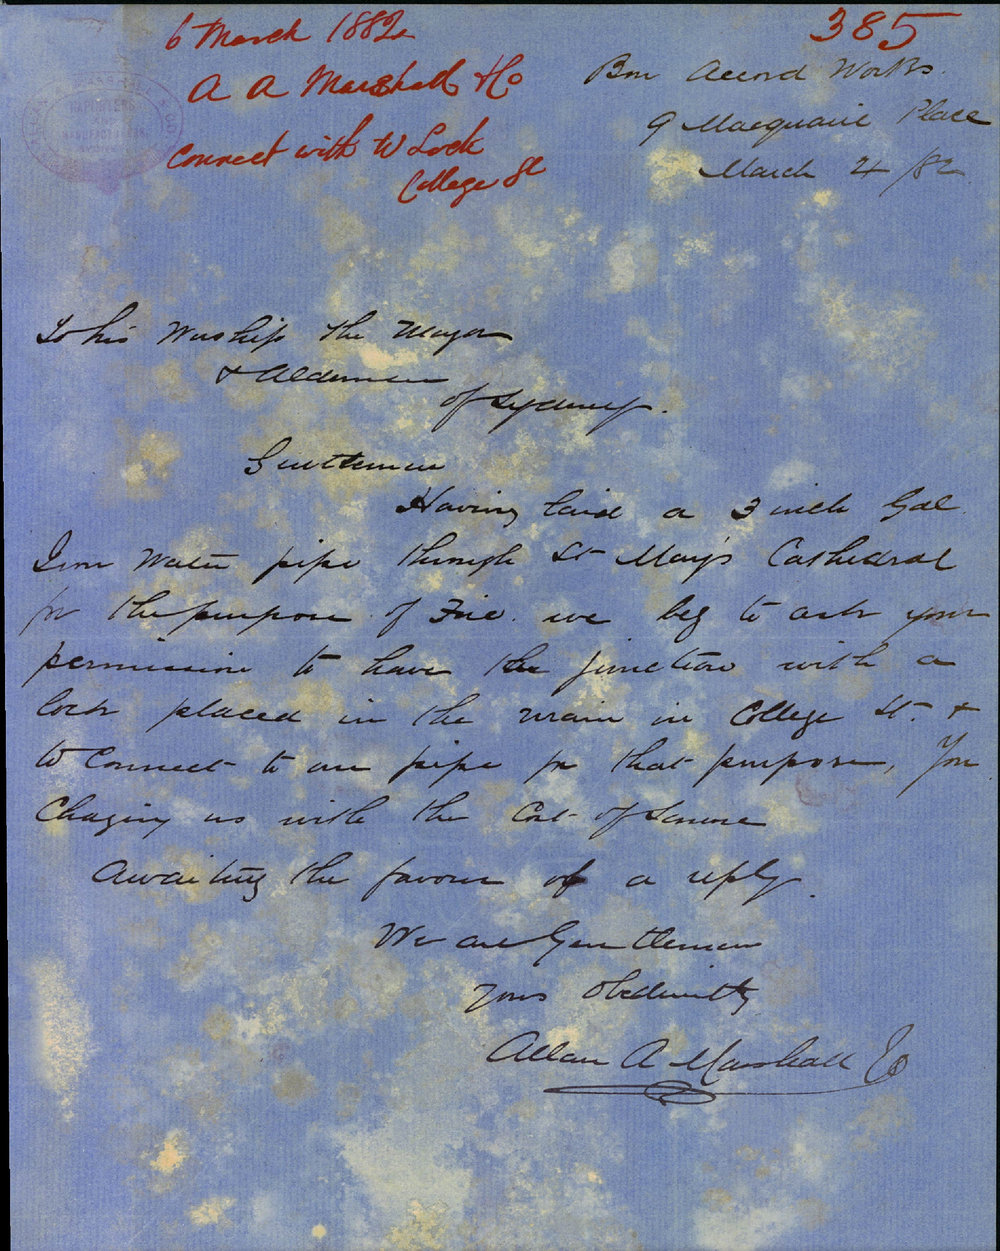 6 March 1882
385
A A Marshall & Co
Connect with W Lock
College St
Bon Accord Works
9 Macquarie Place
March 4 /82
IMPORTERS
AND
MANUFACTURERS
To his Worship the Mayor
& Aldermen
of Sydney.
Gentlemen
Having laid a 3 inch Gal
Iron Water pipe through St Mary's Cathedral
for the purpose of Fire. we beg to ask your
permission to have the junction with a
lock placed in the main in College St. &
to connect to our pipe for that purpose, You
Charging us with the Cost of same
Awaiting the favour of a reply.
We are Gentlemen
Yours Obediently
Allan A Marshall & Co